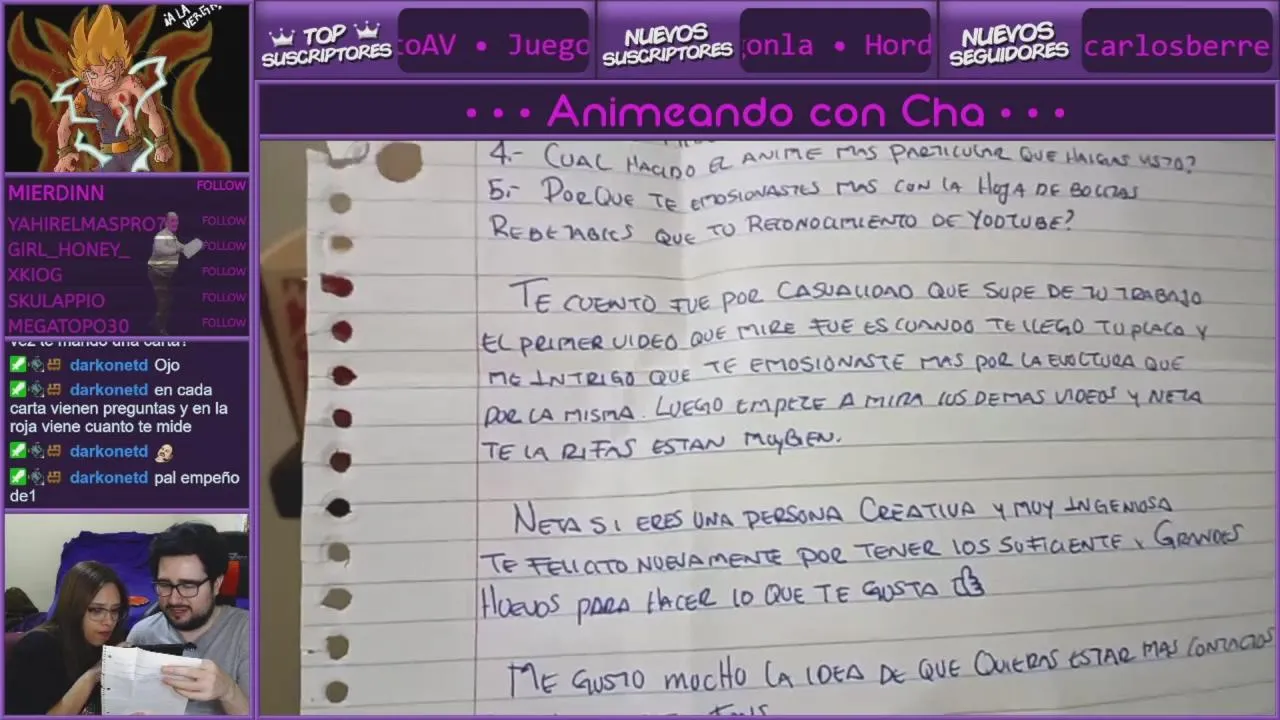 ¡A LA VERGA!
TOP SUSCRIPTORES
toAV • Juego
NUEVOS SUSCRIPTORES
gonla • Hord
NUEVOS SEGUIDORES
carlosberre
• • • Animeando con Cha • • •
MIERDINN FOLLOW
YAHIRELMASPRO7 FOLLOW
GIRL_HONEY_ FOLLOW
XKIOG FOLLOW
SKULAPPIO FOLLOW
MEGATOPO30 FOLLOW
vez te mando una carta?
darkonetd Ojo
darkonetd en cada
carta vienen preguntas y en la
roja viene cuanto te mide
darkonetd
darkonetd pal empeño
de1
4.- CUAL HACIDO EL ANIME MAS PARTICULAR QUE HAIGAS VISTO?
5.- PORQUE TE EMOSIONASTES MAS CON LA HOJA DE BOLITAS
REBETABLES QUE TU RECONOCIMIENTO DE YOUTUBE?
TE CUENTO FUE POR CASUALIDAD QUE SUPE DE TU TRABAJO
EL PRIMER VIDEO QUE MIRE FUE ES CUANDO TE LLEGO TU PLACA Y
ME INTRIGO QUE TE EMOSIONASTE MAS POR LA QUE
POR LA MISMA. LUEGO EMPEZE A MIRA LOS DEMAS VIDEOS Y NETA
TE LA RIFAS ESTAN MUY BIEN.
NETA SI ERES UNA PERSONA CREATIVA Y MUY INGENIOSA
TE FELICITO NUEVAMENTE POR TENER LOS SUFICIENTE Y GRANDES
HUEVOS PARA HACER LO QUE TE GUSTA
ME GUSTO MUCHO LA IDEA DE QUE QUIERAS ESTAR MAS CONTACTOS